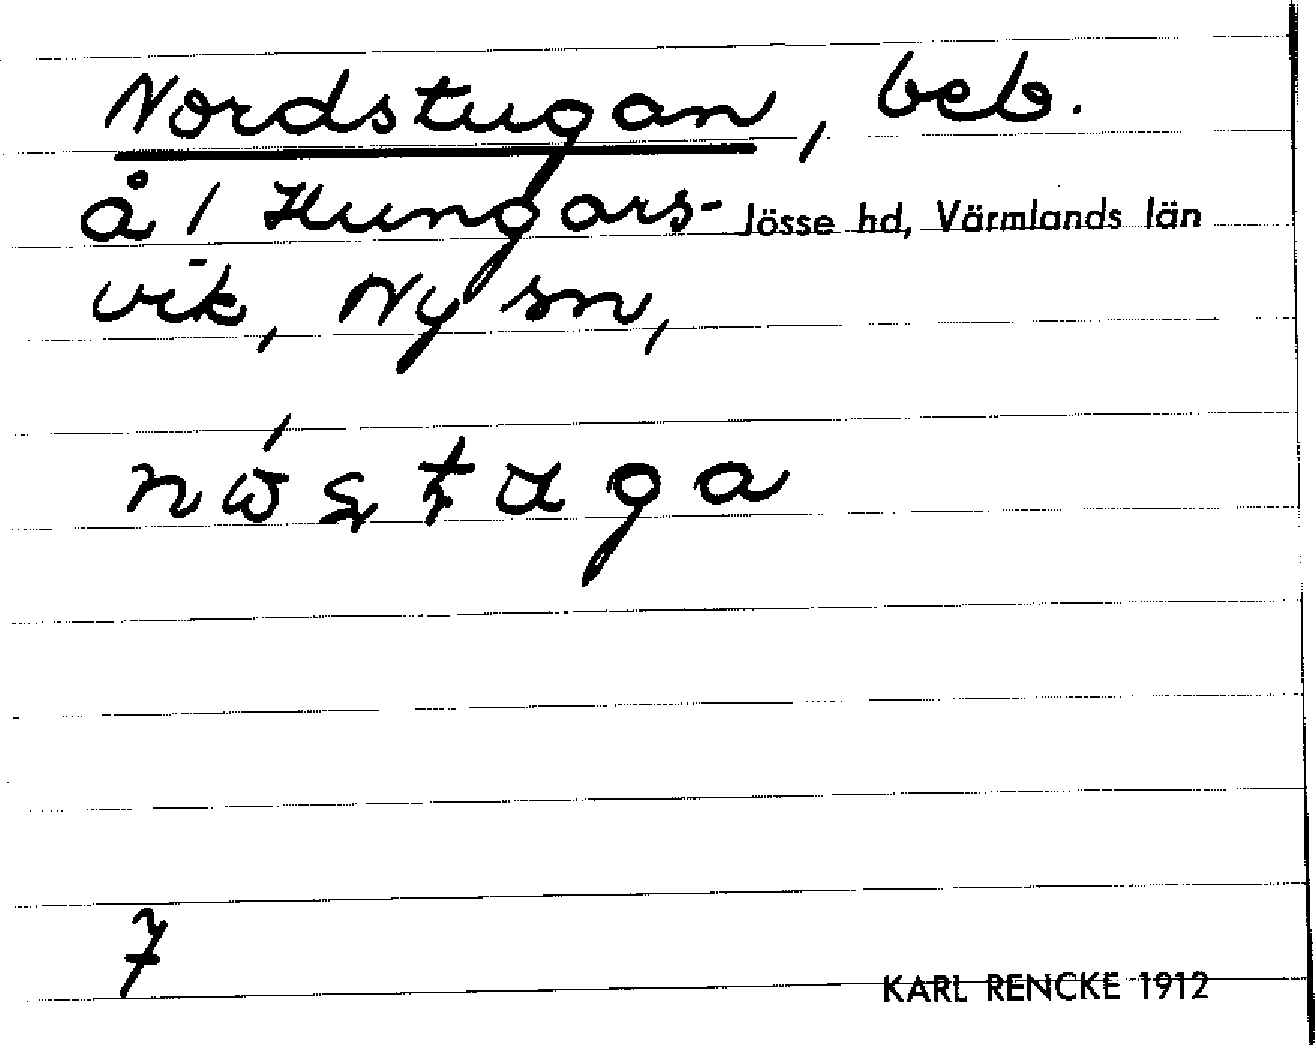 Nordstugan, beb.
å 1 Hungars- Jösse hd, Värmlands län
vik, Ny sn,
7
KARL RENCKE 1912